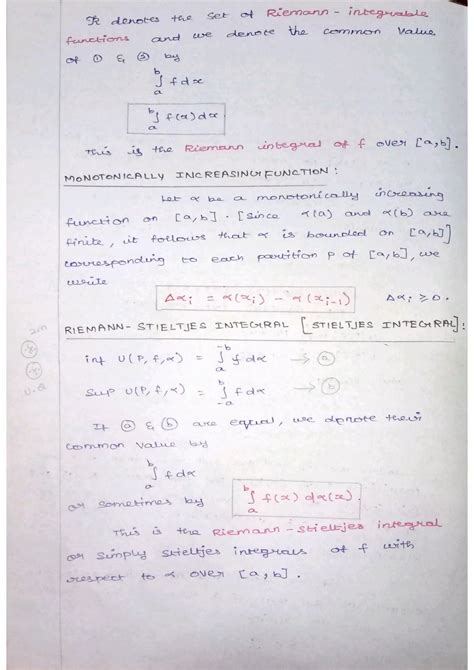 ℛ denotes the set of Riemann-integrable
functions and we denote the common value
of ① & ② by
∫ₐᵇ f dx
∫ₐᵇ f(x) dx.
This is the Riemann integral of f over [a,b].
MONOTONICALLY INCREASING FUNCTION:
Let α be a monotonically increasing
function on [a,b]. [Since α(a) and α(b) are
finite, it follows that α is bounded on [a,b]]
corresponding to each partition P of [a,b], we
write
Δαᵢ = α(xᵢ) - α(xᵢ₋₁) Δαᵢ ≥ 0.
2m
RIEMANN-STIELTJES INTEGRAL [STIELTJES INTEGRAL]:
inf U(P,f,α) = ∫ₐ⁻ᵇ f dα → ⓐ
U.Q
Sup U(P,f,α) = ∫₋ₐᵇ f dα → ⓑ
If ⓐ & ⓑ are equal, we denote their
common value by
∫ₐᵇ f dα
or sometimes by ∫ₐᵇ f(x) dα(x).
This is the Riemann-Stieltjes integral
or simply stieltjes integrals of f with
respect to α over [a,b].